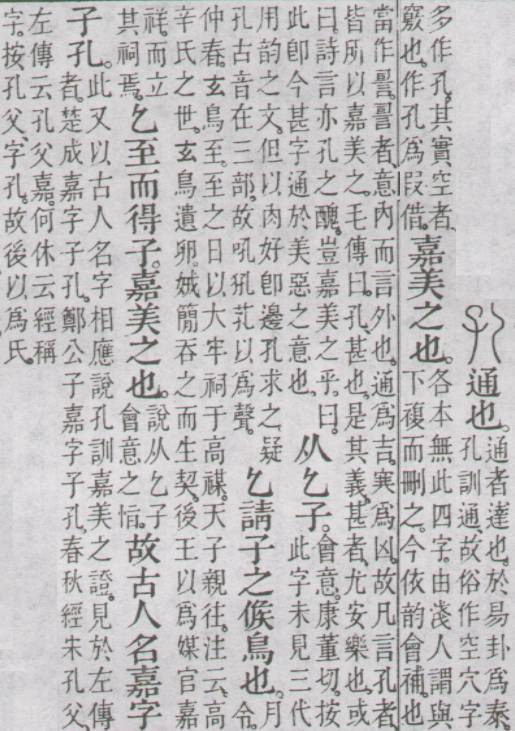 通也。
通者達也。於易卦爲泰。
孔訓通。故俗作空穴字
多作孔。其實空者、
竅也。作孔爲叚借。
嘉美之也。
各本無此四字。由淺人謂與
下複而刪之。今依韵會補。也
當作䛐。䛐者、意內而言外也。通爲吉。塞爲凶。故凡言孔者、
皆所以嘉美之。毛傳曰。孔、甚也。是其義。甚者、尤安樂也。或
曰。詩言亦孔之醜。豈嘉美之乎。曰。
此卽今甚字通於美惡之意也。
从乞子。
會意。康董切。按
此字未見三代
用韵之文。但以肉好卽邊孔求之。疑
孔古音在三部。故吼犼芤以爲聲。
乞請子之𠊱鳥也。
月
令。
仲春。玄鳥至。至之日以大牢祠于高禖。天子親往。注云。高
辛氏之世。玄鳥遺卵。娀簡吞之而生契。後王以爲媒官嘉
祥。而立
其祠焉。
乞至而得子。嘉美之也。
說从乞子
會意之恉。
故古人名嘉字
子孔。
此又以古人名字相應說孔訓嘉美之證。見於左傳
者。楚成嘉字子孔。鄭公子嘉字子孔。春秋經宋孔父。
左傳云孔父嘉。何休云經稱
字。按孔父、字孔。故後以爲氏。